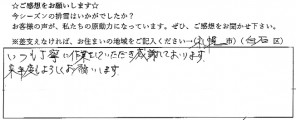 ☆ご感想をお願いします☆
今シーズンの除雪はいかがでしたか？
お客様の声が、私たちの原動力になっています。ぜひ、ご感想をお聞かせ下さい。
※差支えなければ、お住まいの地域をご記入ください→(札幌市)(白石区)
いつも丁寧に作業をしていただき感謝しております。
来年度もよろしくお願いします。